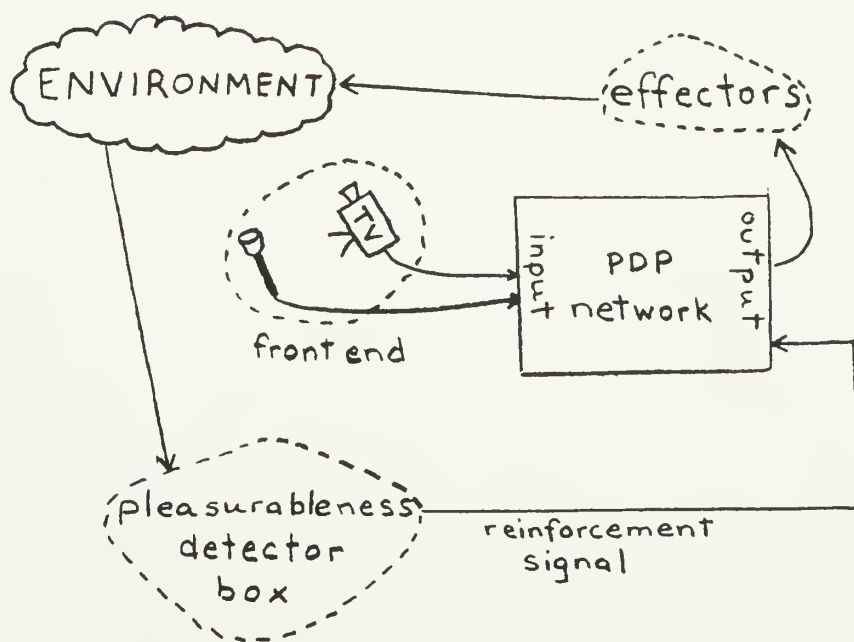 ENVIRONMENT
effectors
TV
input
PDP
network
output
front end
pleasurableness
detector
box
reinforcement
signal